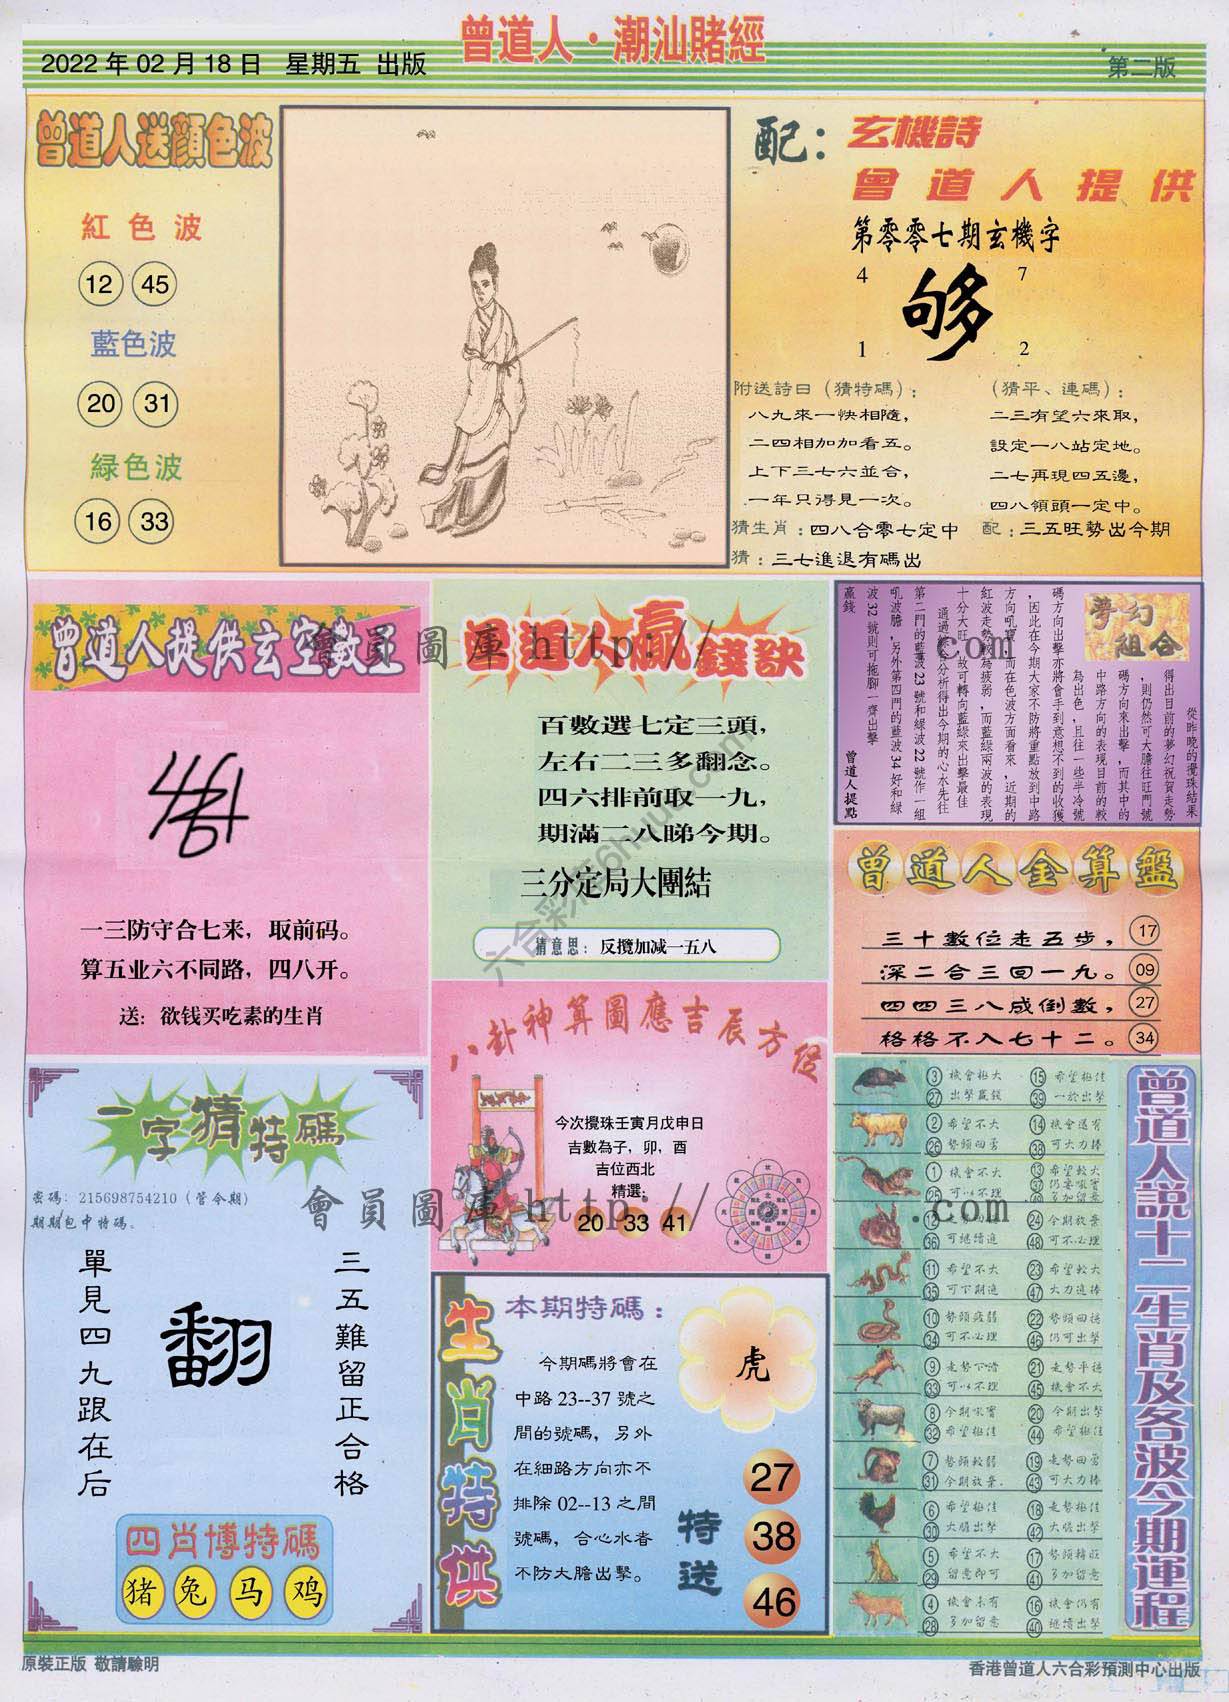 曾道人·潮汕賭經
2022 年 02 月 18 日 星期五 出版
第二版
曾道人送顏色波
紅色波
12 45
藍色波
20 31
緑色波
16 33
配：玄機詩
曾道人提供
第零零七期玄機字
4 7
够
1 2
附送詩曰（猜特碼）：
八九來一快相隨，
二四相加加看五。
上下三七六並合，
一年只得見一次。
（猜平、連碼）：
二三有望六來取，
設定一八站定地。
二七再現四五邊，
四八領頭一定中。
猜生肖：四八合零七定中
配：三五旺勢出今期
猜：三七進退有碼出
曾道人提供玄空數王
一三防守合七来，取前码。
算五业六不同路，四八开。
送：欲钱买吃素的生肖
曾道人贏錢訣
百數選七定三頭，
左右二三多翻念。
四六排前取一九，
期滿二八睇今期。
三分定局大團結
猜意思：反攬加减一五八
夢幻組合
從昨晚的攪珠結果
得出目前的夢幻祝賀走勢
，則仍然可大膽往旺門號
碼方向來出擊，而其中的
中路方向的表現目前的較
為出色，且往一些半冷號
碼方向出擊亦將會手到意想不到的收獲
，因此在今期大家不防將重點放到中路
方向吼寶，而在色波方面看來，近期的
紅波走勢較為疲弱，而藍綠兩波的表現
十分大旺，故可轉向藍綠來出擊最佳
通過綜合分析得出今期的心水先往
第二門的藍波23號和綠波22號作一組
吼波膽，另外第四門的藍波34好和綠
波32號則可拖腳一齊出擊
贏錢
曾道人提點
曾道人金算盤
三十數位走五步， 17
深二合三回一九。 09
四四三八成倒數， 27
格格不入七十二。 34
八卦神算圖應吉辰方位
今次攪珠壬寅月戊申日
吉數為子，卯，酉
吉位西北
精選：
20 33 41
一字猜特碼
密碼：215698754210（管今期）
期期包中特碼。
三五難留正合格
翻
單見四九跟在后
四肖博特碼
猪 兔 马 鸡
生肖特供
本期特碼：
虎
今期碼將會在
中路 23--37 號之
間的號碼，另外
在細路方向亦不
排除 02--13 之間
號碼，合心水者
不防大膽出擊。
特送
27
38
46
曾道人說十二生肖及各波今期運程
3 機會極大 15 希望極佳
27 出擊贏錢 39 一於出擊
2 希望不大 14 機會還有
26 勢頭回勇 38 可大力捧
1 機會不大 13 希望較大
25 可以不理 37 仍要吼實
49 多加留意
12 24 今期放棄
36 可繼續追 48 可不必理
11 希望不大 23 希望較大
35 可下期追 47 大力追捧
10 勢頭疲弱 22 勢頭回穩
34 可不必理 46 仍可出擊
9 走勢下滑 21 走勢平穩
33 可以不理 45 機會不大
8 今期吼實 20 今期出擊
32 希望極佳 44 希望極佳
7 勢頭較弱 19 走勢回勇
31 今期放棄. 43 可大力捧
6 希望極佳 18 走勢極佳
30 大膽出擊 42 大膽出擊
5 希望不大 17 勢頭轉旺
29 留意即可 41 多加留意
4 機會未有 16 機會仍有
28 多加留意 40 繼續出擊
會員圖庫 http:// .com
會員圖庫 http:// .com
原裝正版 敬請驗明
香港曾道人六合彩預測中心出版